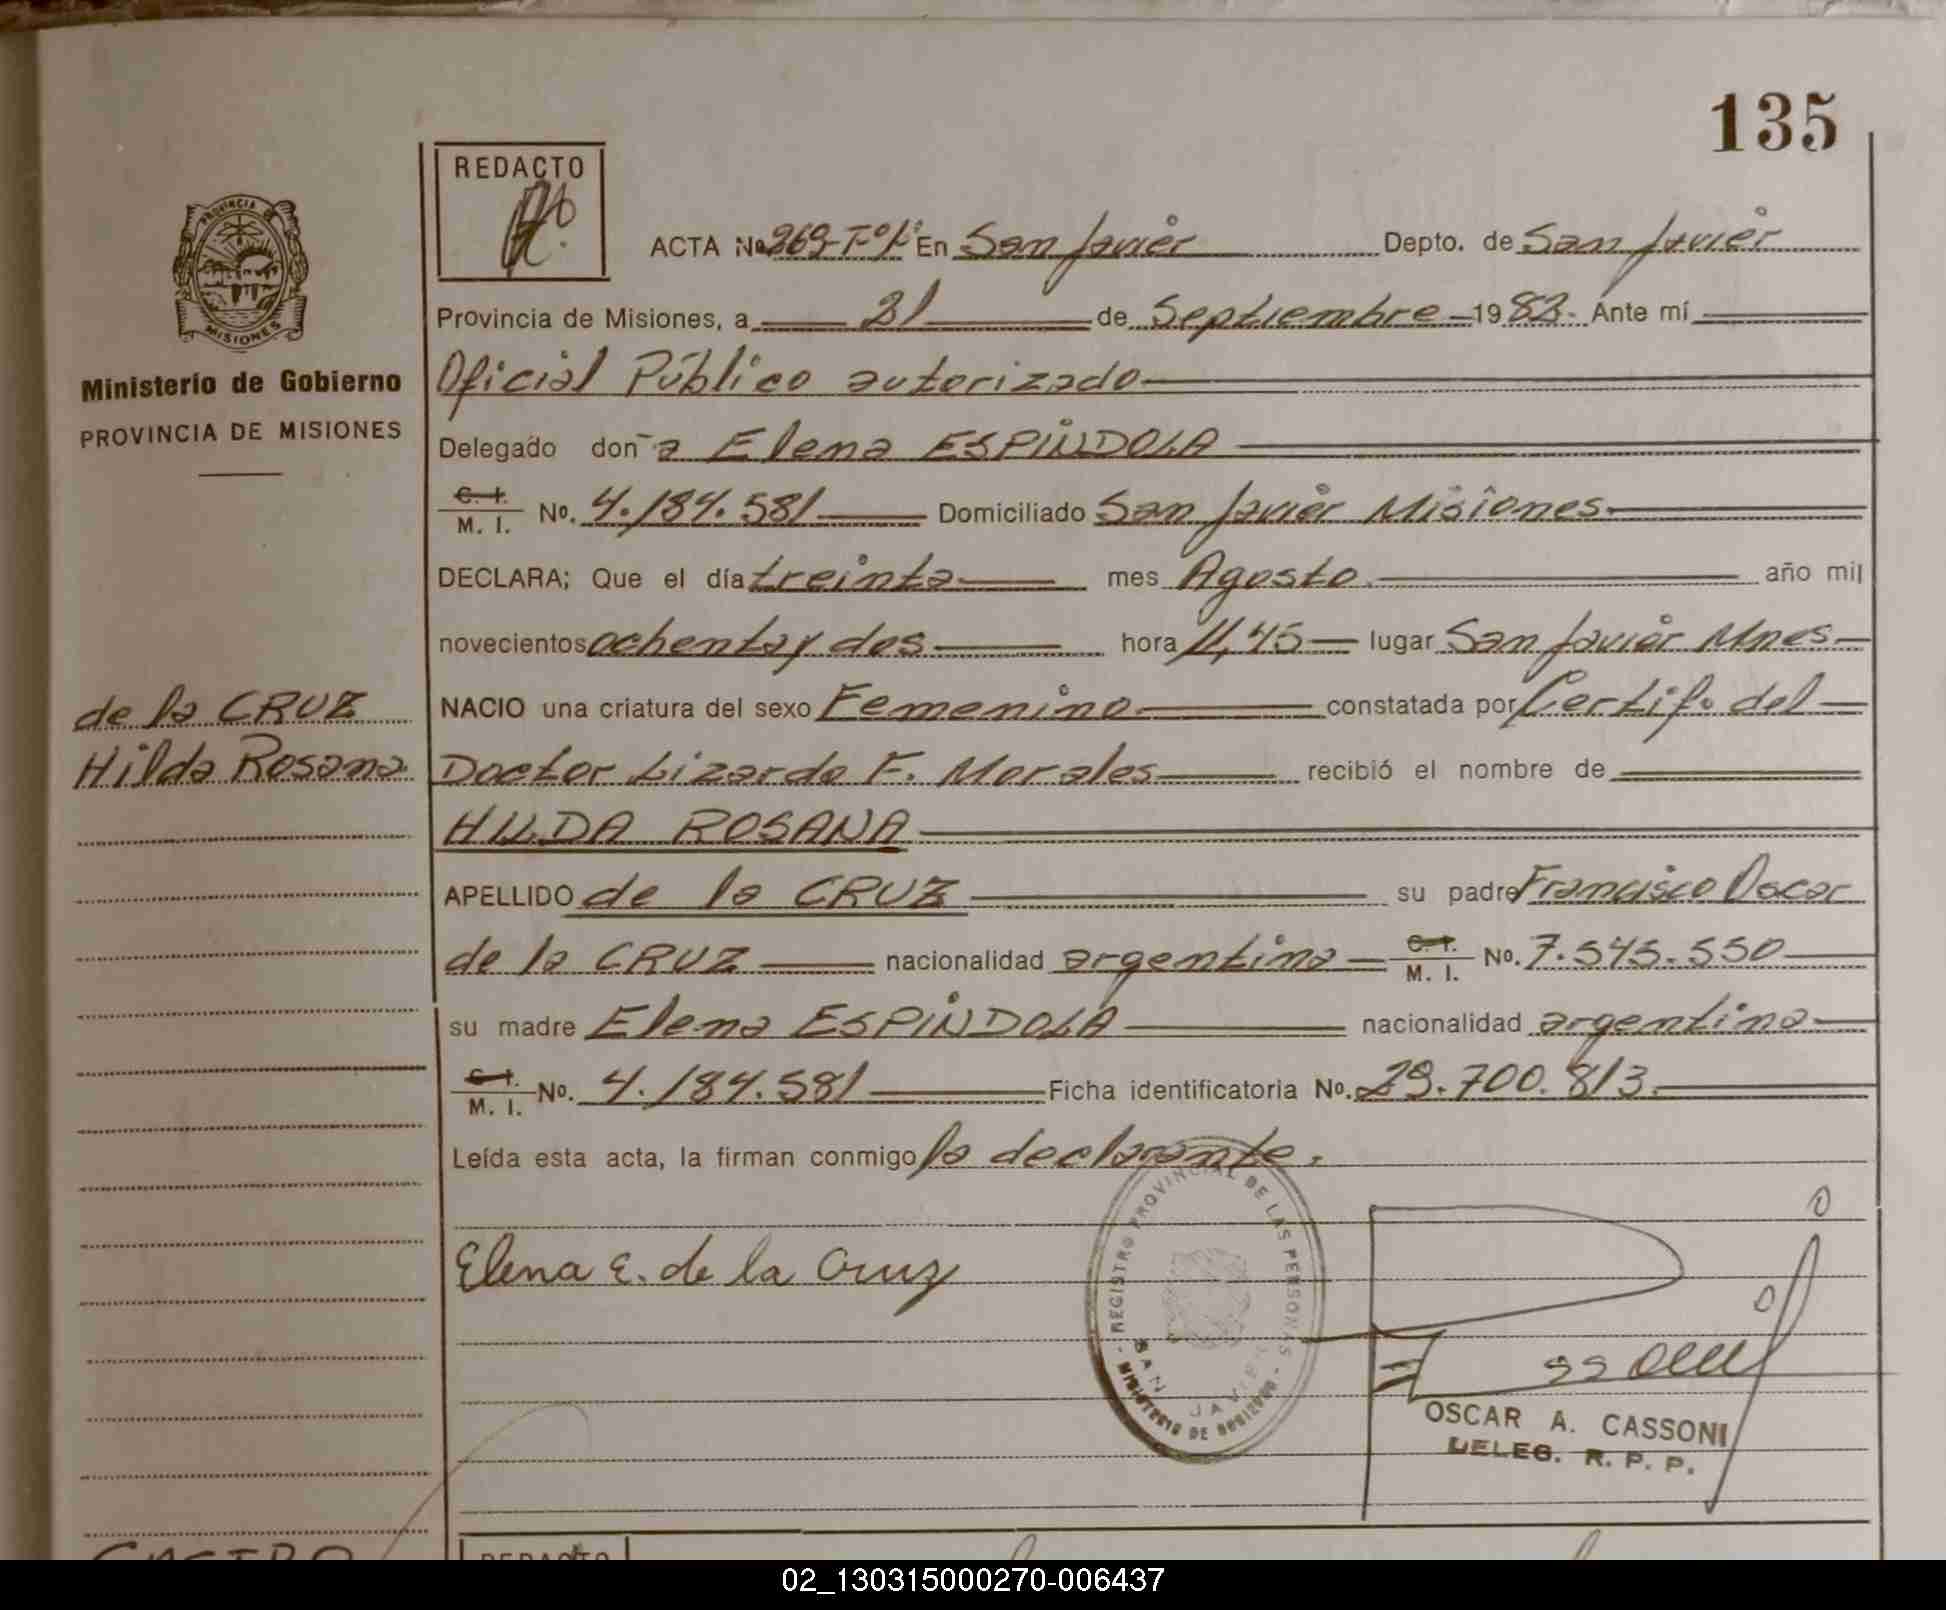 135
REDACTO
PROVINCIA DE
MISIONES
ACTA No. 269-Tº1º En San Javier Depto. de San Javier
Provincia de Misiones, a 21 de Septiembre 1982. Ante mí
Ministerio de Gobierno
PROVINCIA DE MISIONES
Oficial Público autorizado
Delegado doña Elena ESPÍNDOLA
C. I. M. I. No. 4.184.581 Domiciliado San Javier Misiones.
DECLARA; Que el día treinta mes Agosto. año mil
novecientos ochenta y dos hora 11,45 lugar San Javier Mnes
de la CRUZ
Hilda Rosana
NACIO una criatura del sexo Femenino constatada por Certif. del
Doctor Lizardo F. Morales recibió el nombre de
HILDA ROSANA
APELLIDO de la CRUZ su padre Francisco Oscar
de la CRUZ nacionalidad argentina C. I. M. I. No. 7.545.550
su madre Elena ESPÍNDOLA nacionalidad argentina
C. I. M. I. No. 4.184.581 Ficha identificatoria No. 29.700.813.
Leída esta acta, la firman conmigo la declarante.
Elena E. de la Cruz
REGISTRO PROVINCIAL DE LAS PERSONAS
SAN JAVIER
MINISTERIO DE GOBIERNO
OSCAR A. CASSONI
DELEG. R. P. P.
CASTRO
REDACTO
02_130315000270-006437